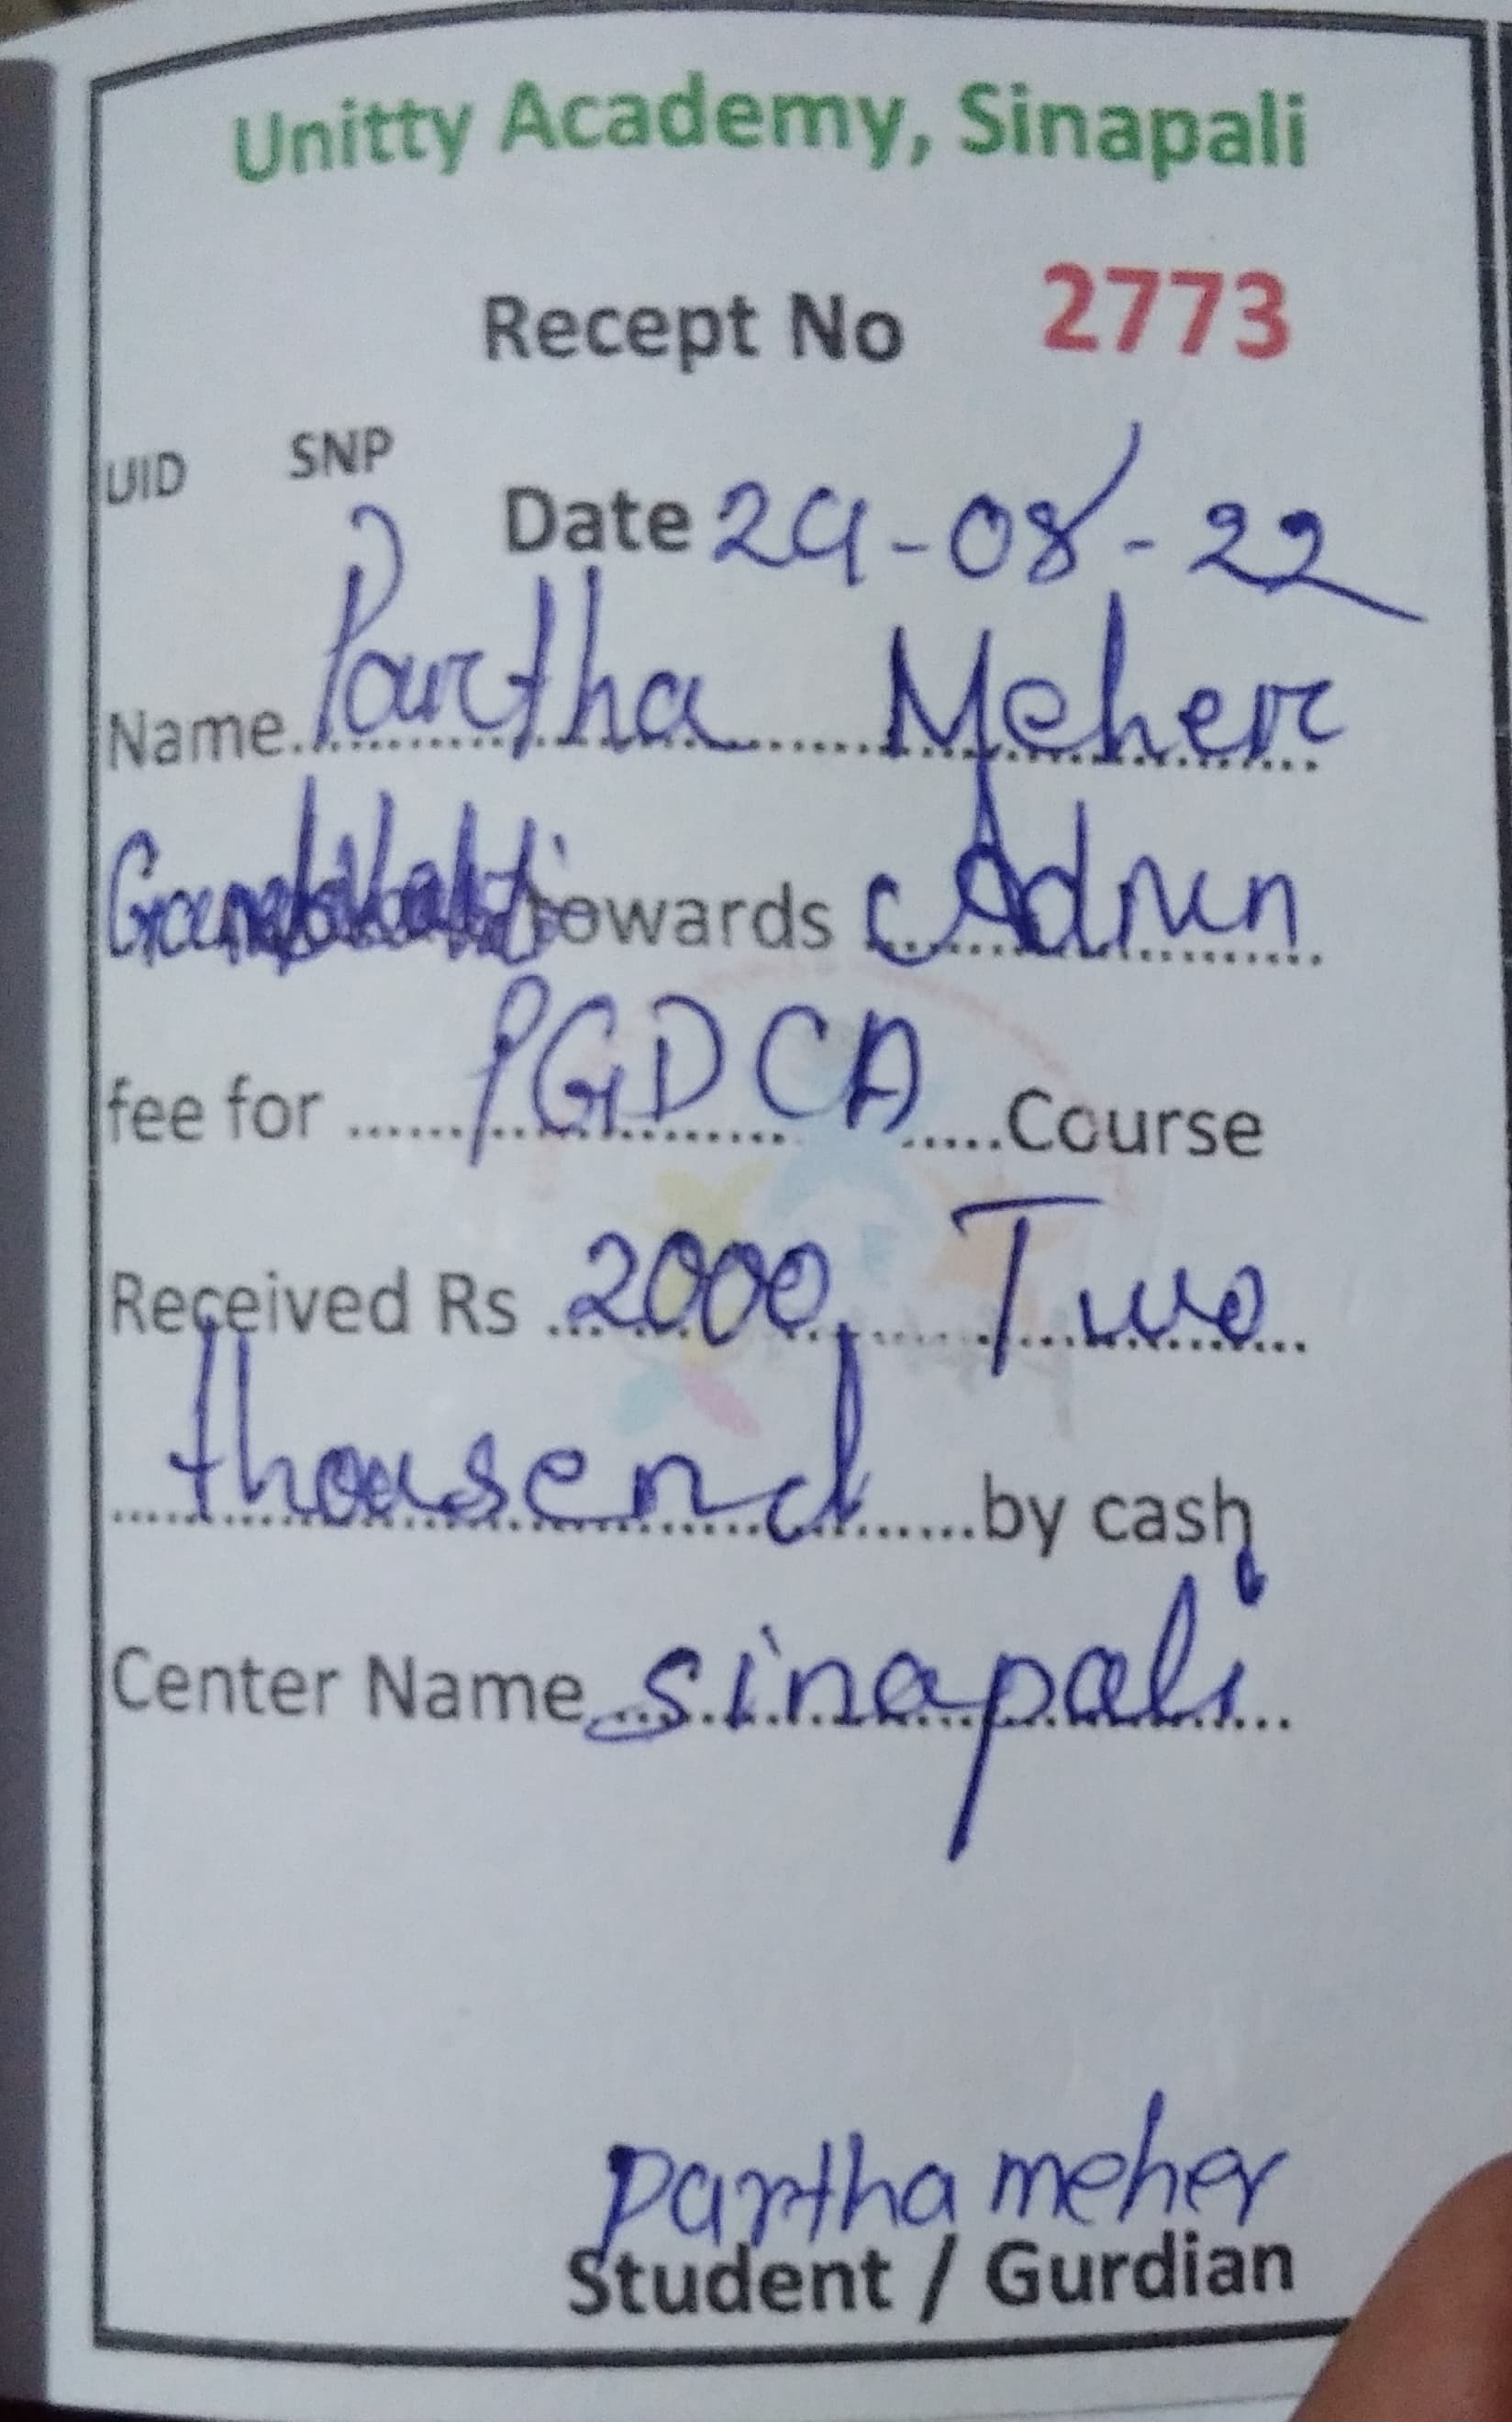 Unitty Academy, Sinapali
Recept No 2773
UID SNP
Date 24-08-22
Name Partha Meher
towards Admn
fee for PGDCA Course
Received Rs 2000 Two
thousend by cash
Center Name Sinapali
Partha meher
Student / Gurdian